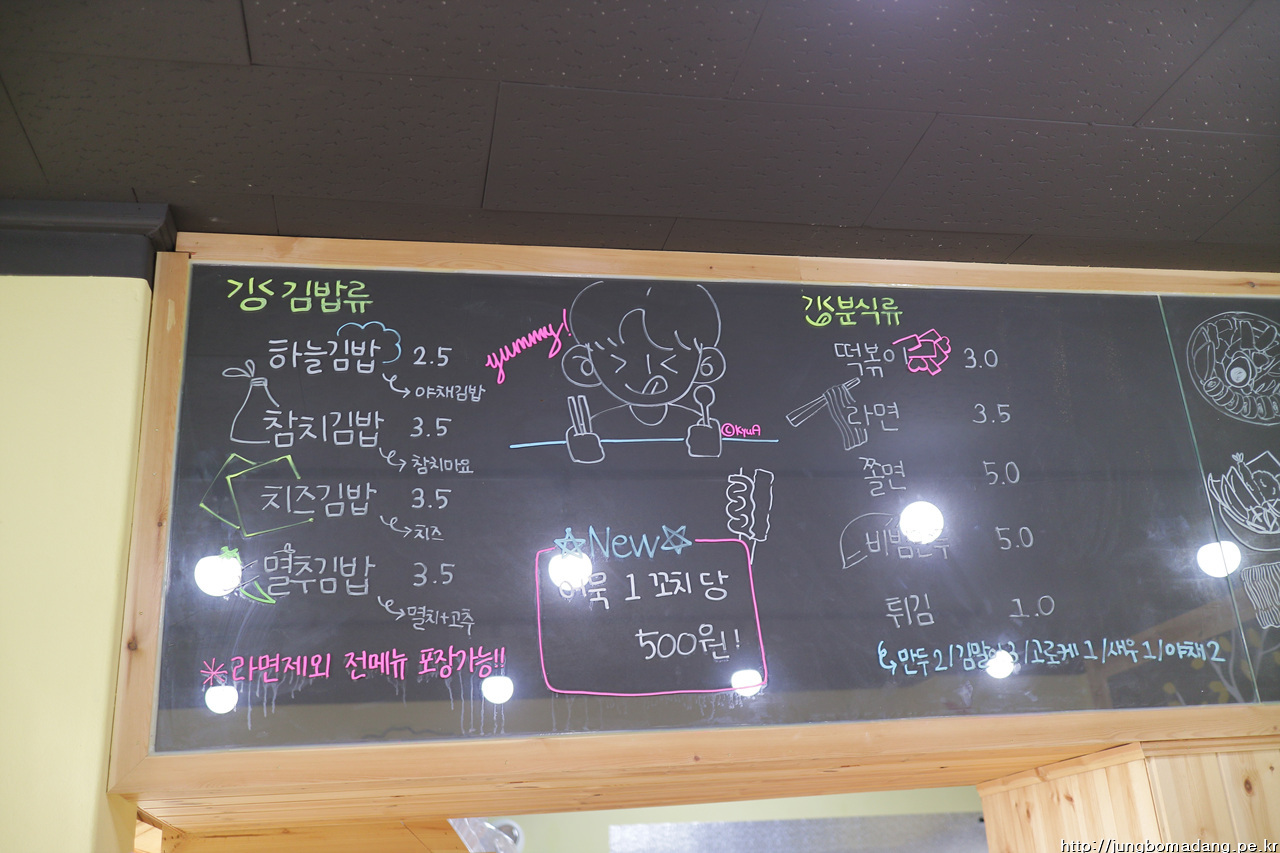 김밥류
하늘김밥 2.5
야채김밥
참치김밥 3.5
참치마요
치즈김밥 3.5
치즈
멸추김밥 3.5
멸치+고추
*라면제외 전메뉴 포장가능!!
yummy!
©KyuA
New
1 꼬치당
500원!
분식류
떡볶이 3.0
라면 3.5
쫄면 5.0
5.0
튀김 1.0
만두 2/김말이 3/고로케 1/새우 1/야채 2
http://jungbomadang.pe.kr